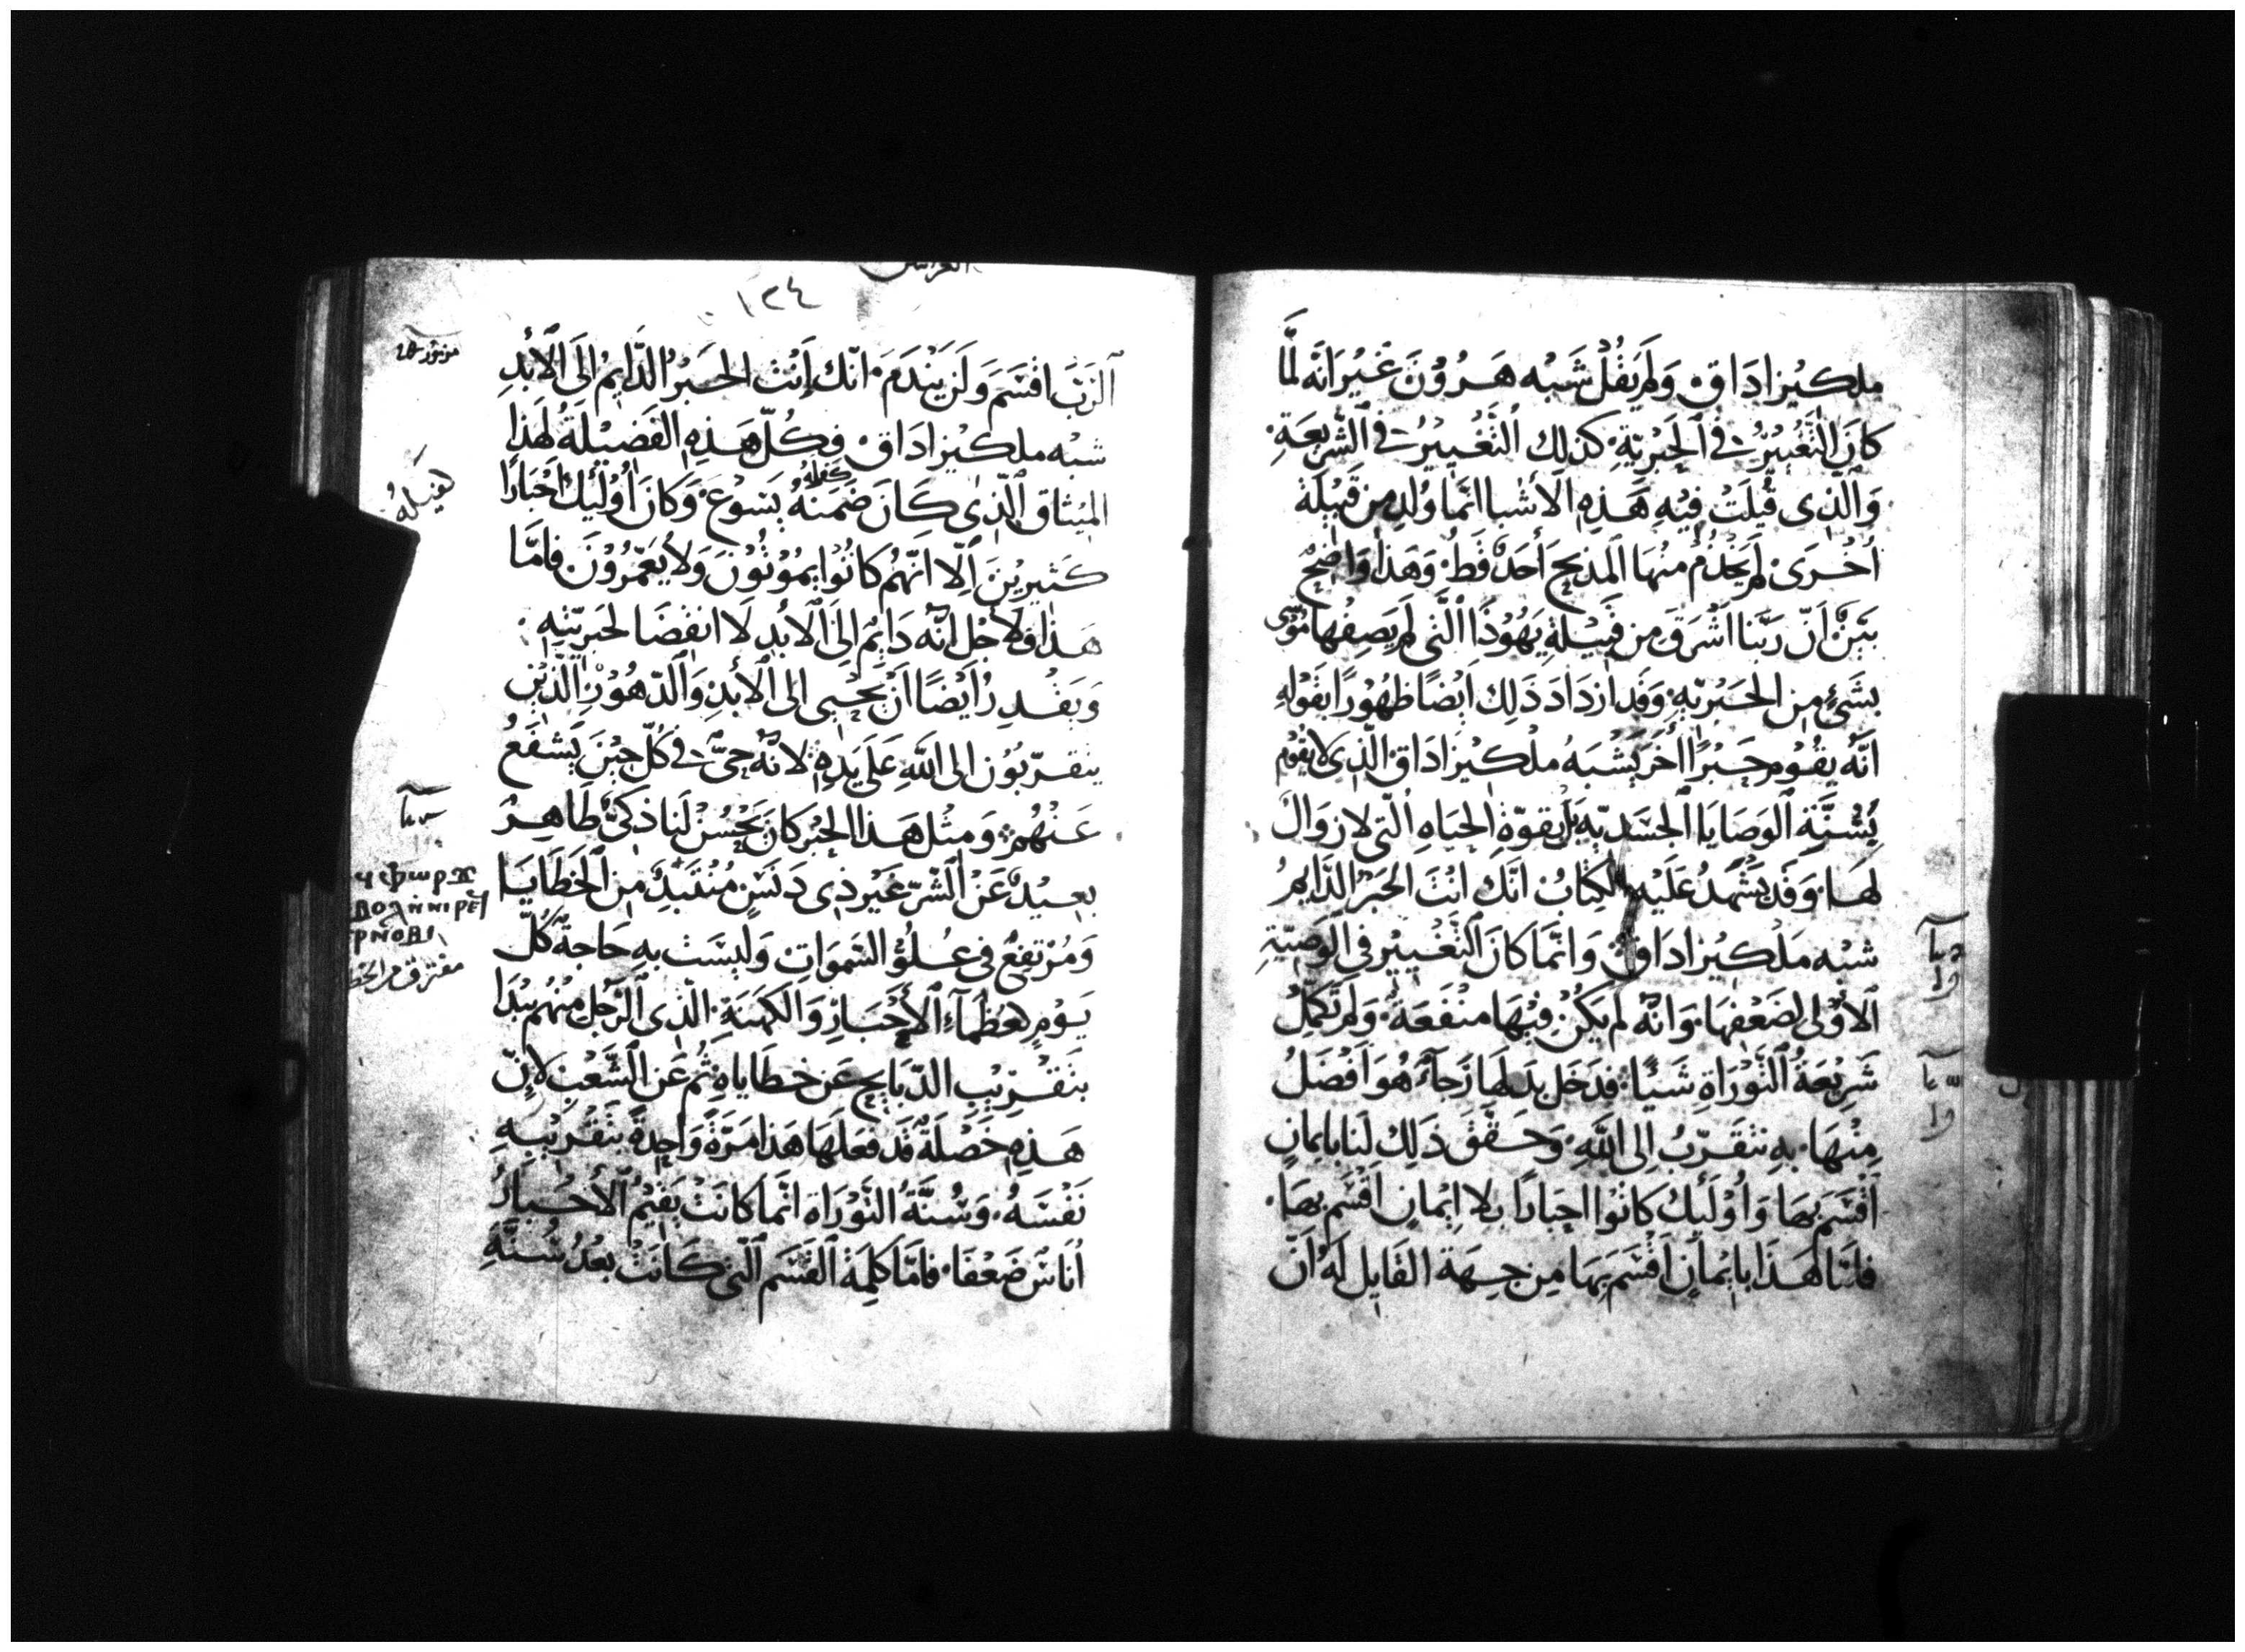 ملكيزاداق وَلم يَقُلْ شَبْه هَرُوُنَ غَيْرَ انَّه لَّما
كانَ التَّغْييُرُ في الْحَبْريّةِ كذلك التَّغْييْرُ في الشَّريعَةِ
وَالّذى قُيلَتْ فيْهِ هَذِهِ الاَشْيا انمَّا وُلِد من قَبيْلة
اُخْرَى لم يَخْدُمْ منْهَا المذبحَ أَحَدٌ قَطُ وَهَذا وَاضِحٌ
بَيّنٌ انّ رَبَّنا اشْرَقَ مِن قَبيْلةِ يَهُوُذَا الَّتى لم يَصِفْها مُوسى
بشَئٍ مِن الحَبْريّهِ وَقَد ازدَادَ ذَلِك اَيْضًا ظهُوْرًا بقَوْلهِ
انَّهُ يقُوْم حَبْرًا اخَر يَشْبَهُ ملْكيزاداق الّذِى لا يقوم
بُسُنَّةِ الوَصَايَا الجسَدِيّهِ بَلْ بقوّةِ الحَيَاهِ الّتى لا زوَالَ
لهَا وَقَد يَشْهَدُ عَلَيْهِ الكِتابُ انّكَ انْتَ الحَبْرُ الدَّايمُ
شبْه مَلْكيزادَاقْ وَانمَّا كانَ التَّغْييْر في الوَصِيّةِ
الاُوْلى لضَعْفِهَا وَانّه لم يَكُنْ فيْهَا منْفَعَةٌ وَلم تُكمِّلُ
شَرِيْعَةُ التَّوْرَاةِ شَيْئًا فدَخَل بدَلها رَجَآءٌ هُوَ اَفْضَلُ
مِنْهَا بهِ نتَقَرّبُ اِلى اللهِ وَحقّقَ ذَلِك لنا بايمانٍ
اَقْسَم بهَا وَاُوْلَيْك كانُوا احبَارًا بلا اِيْمانٍ اقْسَم بهَا
فامّا هَذَا بايْمانٍ اقْسَمَ بهَا مِن جِهَة القَايل لَهْ انّ
١٢٤
الرَبَّ اقسَمَ وَلَن يَنْدَمَ انّك اَنْتَ الحَبرُ الدَّايمُ الَى الاَبْدِ
شبْه ملكيزادَاق فكُلّ هَذِهِ الفَضيْلَةُ لهَذا
الميْثاق الّذِى كَانَ ضَمِنَهُ كفله يَسُوْعَ وَكانَ اُوْلَيْك اَحْبَارًا
كَثيريْنَ اِلّا انّهُم كانُوْا يمُوْتُوْنَ وَلاَ يُعَمَّرُوْنَ فامَّا
هَذا فلاَجْل انّه دَايمٌ الىَ الاَبْدِ لَا انقضَا لحَبريّتهِ
وَيقْدِرُ اَيْضًا اَنْ يحْيى الى الأَبدِ وَالدّهُوْرِ الّذيْن
يتقرّبُوُن الى اللهِ عَلَى يَدِهِ لانّه حىٌّ في كُلّ حِيْنَ يَشفَعُ
عَنْهُمْ وَمثْل هَذا الحَبْر كانَ يَحْسُنْ لَنا ذكىٌّ طَاهِرٌ
بعيْدٌ عَنْ الشّرّ غَيْر ذى دَنَسٍ مُنْتَبَذٌ مِن الخَطَايَا
وَمُرْتفِعٌ في عُلُوّ السَّموَاتِ وَليْسَتْ بهِ حَاجةٌ كُلّ
يَوْمٍ لعُظَمَآءِ الأَحْبَارِ وَالكهَنَةِ الذى الرَّجُلُ مِنْهُم يبْدَا
بتَقْرِيْبِ الذّبَايح عَن خطَاياهِ ثُم عَن الشَّعْبِ لانّ
هَذِهِ خَصْلَةٌ قَد فعَلهَا هَذا مَرَّةً وَاحِدةً بتَقْرِيْبهِ
نَفْسَهُ وَسُنَّةُ التَّوْرَاة انّمَا كانَتْ يُقيْمُ الأَحْبَارَ
اُنَاسْ ضَعْفَا فامَّا كلِمَة القَسَم الّتى كانَتْ بَعْدُ سُنَّةِ
مفترق من الخطا